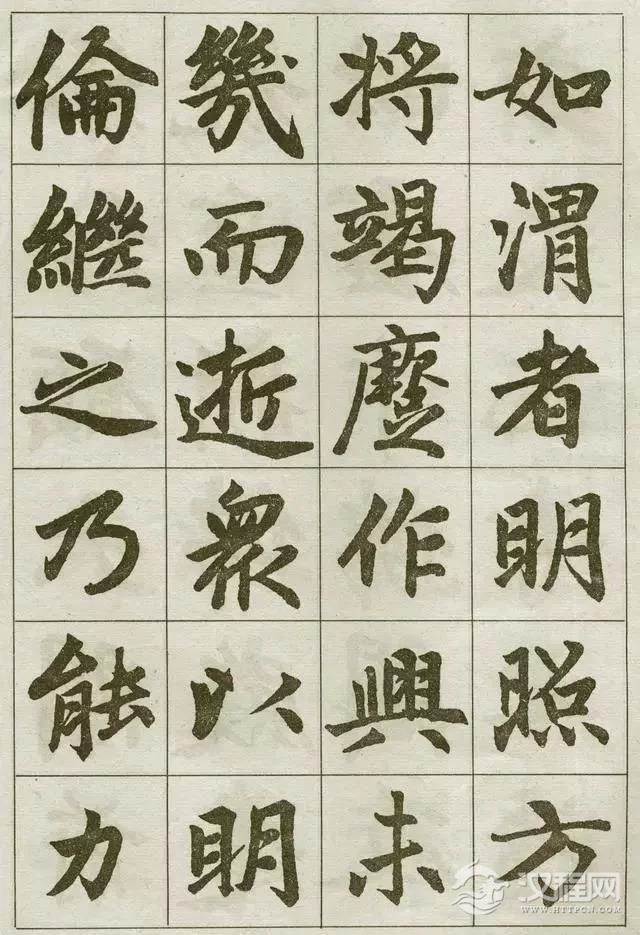 如渭者明照方
將竭䥥作興未
幾而逝衆以明
倫繼之乃能力
汉程网
WWW.HTTPCN.COM